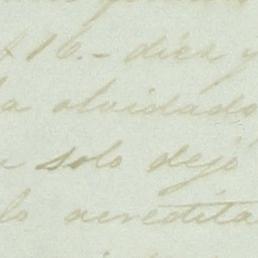 16.- diez y
a olvidado
solo dejó
lo acredita